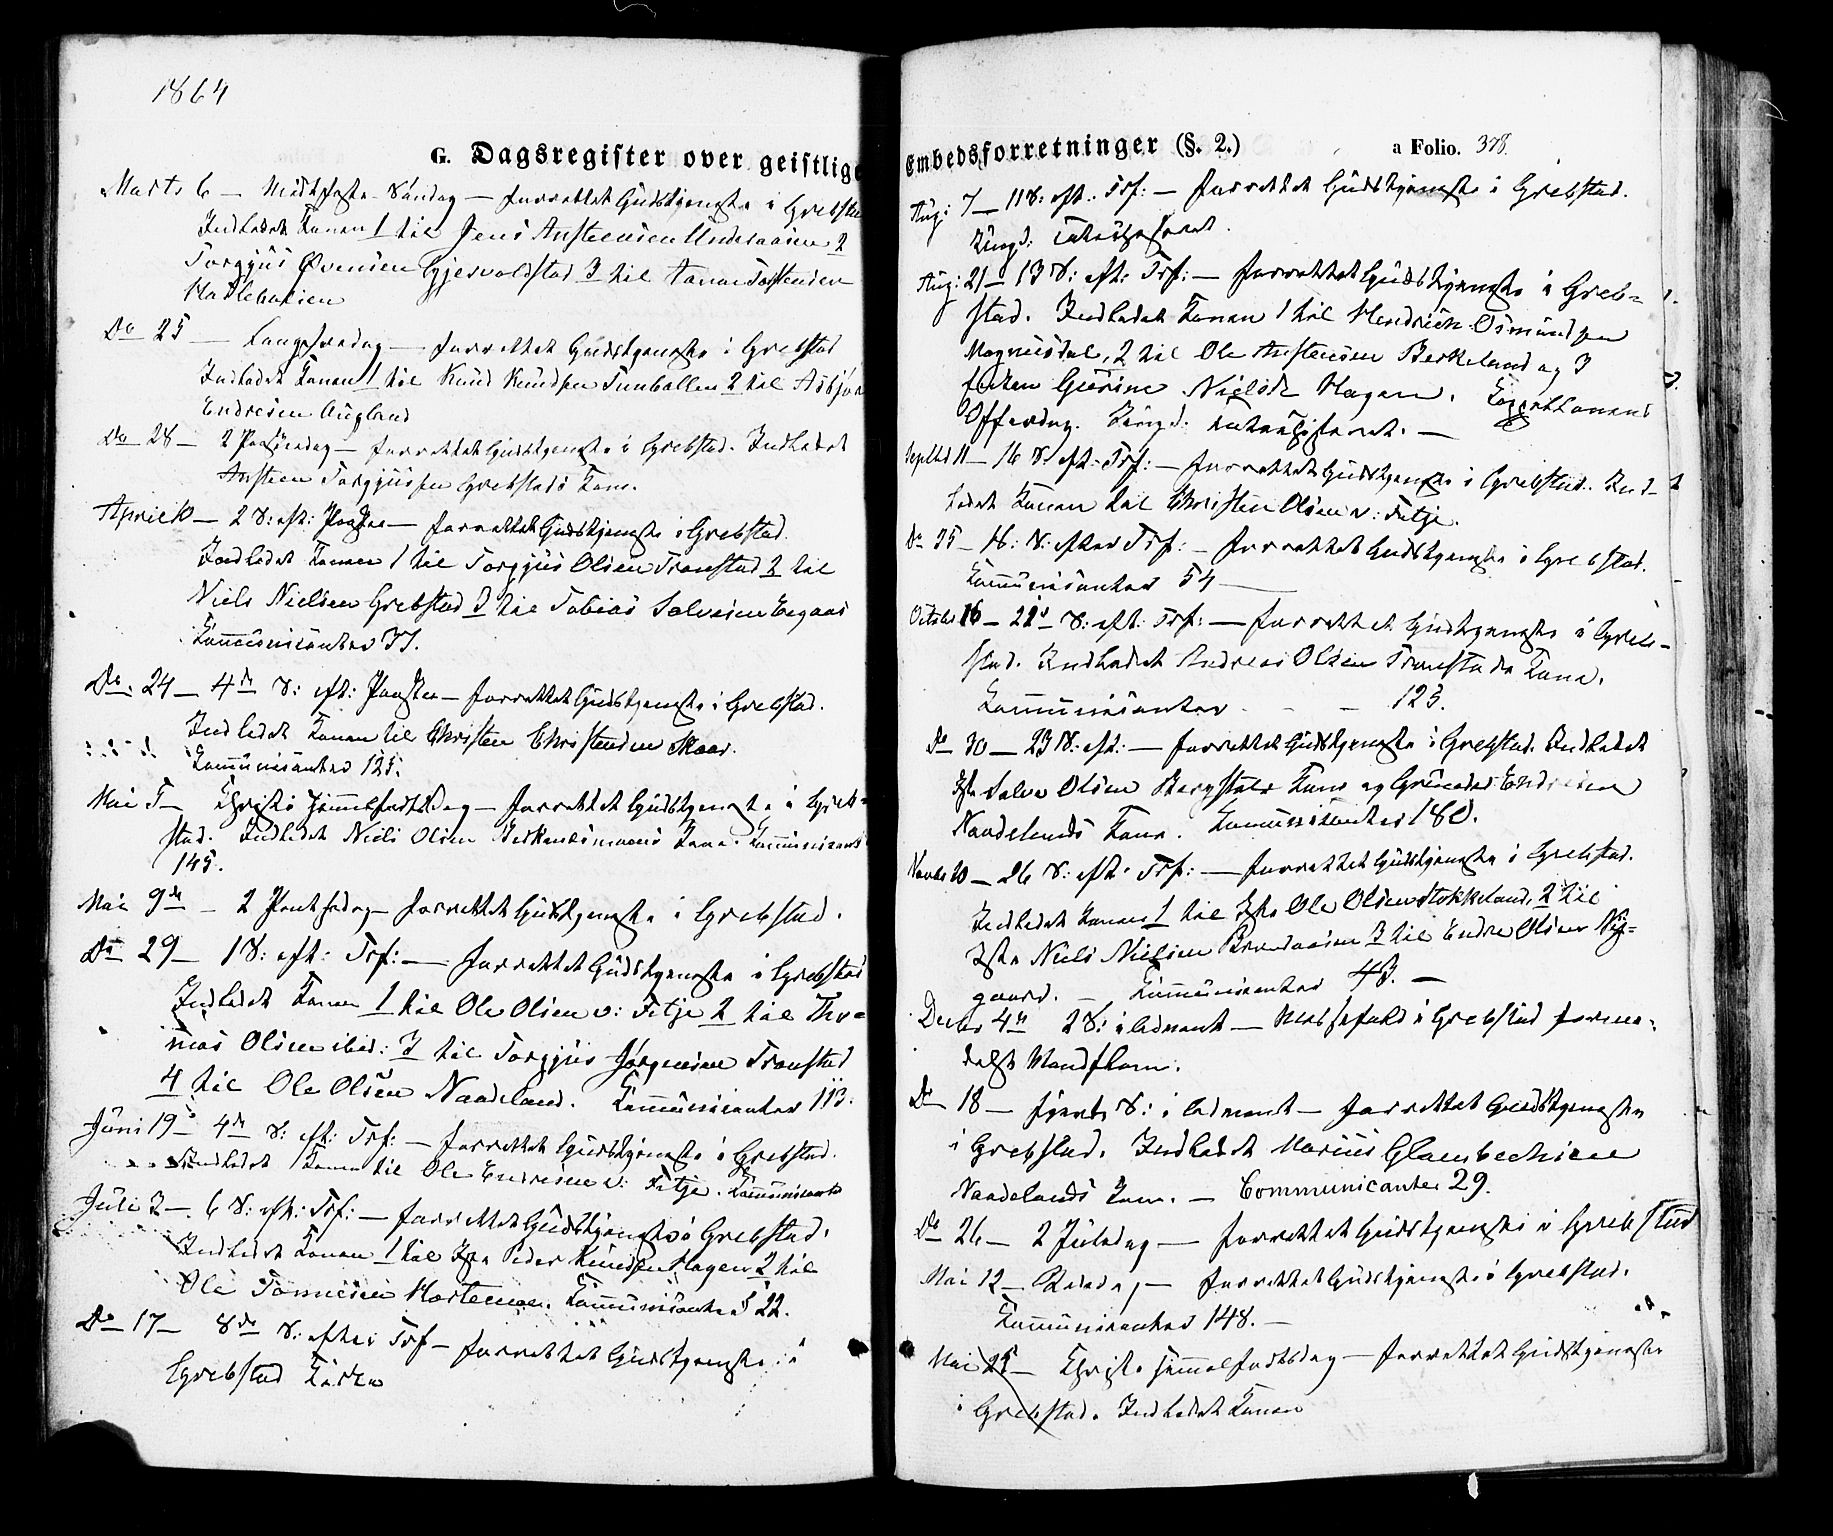 1864
G. Dagsregister over geistlige
Marts 6 — Midtfaste Søndag — forrettet Gudstjeneste i Grebsta
Indledet Konen 1 til Jens Anstensen Underaasen 2
Torgjus Øvensen Gjesvoldstad 3 til Torstensen
Do 25 — Langfredag — forrettet Gudstjeneste i Grebstad
Indledet Konen 1 til Knud Knudsen Tunballen 2 til Asbjør
Endresen Augland
Do 28 — 2 Paaskedag — forrettet Gudstjeneste i Grebstad. Indledet
Ansten Torgjussen Grebstads Kone.
April 10 — 2 S: eft: Paaske — forrettet Gudstjeneste i Grebstad.
Indledet Konen 1 til Torgjus Olsen Tronstad 2 til
Niels Nielsen Grebstad 3 til Tobias Salvesen Eegaas
Communicanter 37.
Do 24 — 4de S: eft: Paaske — forrettet Gudstjeneste i Grebstad.
Indledet Konen til Christen Christensen Skaar.
Communicanter 125.
Mai 5 — Christi Himmelfartsdag — forrettet Gudstjeneste i Greb-
stad. Indledet Niels Olsen Kone. Communicant
145.
Mai 9de — 2 Pintsedag — forrettet Gudstjeneste i Grebstad.
Do 29 — 1 S: eft: Trf: — forrettet Gudstjeneste i Grebstad
Indledet Konen 1 til Ole Olsen v: Fitje 2 til Tho-
mas Olsen ibid: 3 til Torgjus Jørgensen Tronstad
4 til Ole Olsen Naadeland. Communicanter 113.
Juni 19 — 4de S: eft: Trf: — forrettet Gudstjeneste i Grebstad.
Indledet Konen til Ole Endresen v: Fitje. Communicante
Juli 3 — 6 S: eft: Trf: — forrettet Gudstjeneste i Grebstad.
Indledet Konen 1 til Peder Knudsen Hagen 2 til
Ole Tønnesen Communicanter 22.
Do 17 — 8de S: efter Trf — forrettet Gudstjeneste i
Grebstad Kirke
Embedsforretninger (§. 2.)
a Folio. 378.
Aug: 7 — 11 S: eft: Trf: — forrettet Gudstjeneste i Grebstad.
Ungd: catechiseret.
Aug: 21 — 13 S: eft: Trf: — forrettet Gudstjeneste i Greb-
stad. Indledet Konen 1 til Hendrick Osmundsen
Magnusdal, 2 til Ole Anstensen Birkeland og 3
Enken Gurine Nielsdr Hagen.
Offerdag. Ungd: catechiseret. —
Septbr 11 — 16 S. eft: Trf: — forrettet Gudstjeneste i Grebstad. Ind-
ledet Konen til Christen Olsen v: Fitje.
Do 25 — S: efter Trf: — forrettet Gudstjeneste i Grebstad.
Communicanter 54 —
October 16 — S: eft: Trf: — forrettet Gudstjeneste i Greb-
stad. Indledet Andreas Olsen Tronstads Kone.
Communicanter — 123.
Do 30 — 23 S: eft: — forrettet Gudstjeneste i Grebstad. Indledet
Salve Olsen Kone og Endresen
Naadelands Kone. Communicanter 180.
Novbr — 26 S: eft: Trf: — forrettet Gudstjeneste i Grebstad.
Indledet Konen 1 til Ole Olsen Stokkeland, 2 til
Niels Nielsen 3 til Endre Olsen Ny-
gaard. — Communicanter 43. —
Decbr 4de 2 S: i Advent — Messefald i Grebstad forme-
delst
Do 18 — fjerde S: i Advent — forrettet Gudstjeneste
i Grebstad. Indledet Marius Glambechsen
Naadelands Kone. — Communicanter 29.
Do 26 — 2 Juledag — forrettet Gudstjeneste i Grebstad
Mai 12 — Bededag — forrettet Gudstjeneste i Grebstad.
Communicanter 148. —
Mai 25 — Christi Himmelfartsdag — forrettet Gudstjeneste
i Grebstad. Indledet Konen